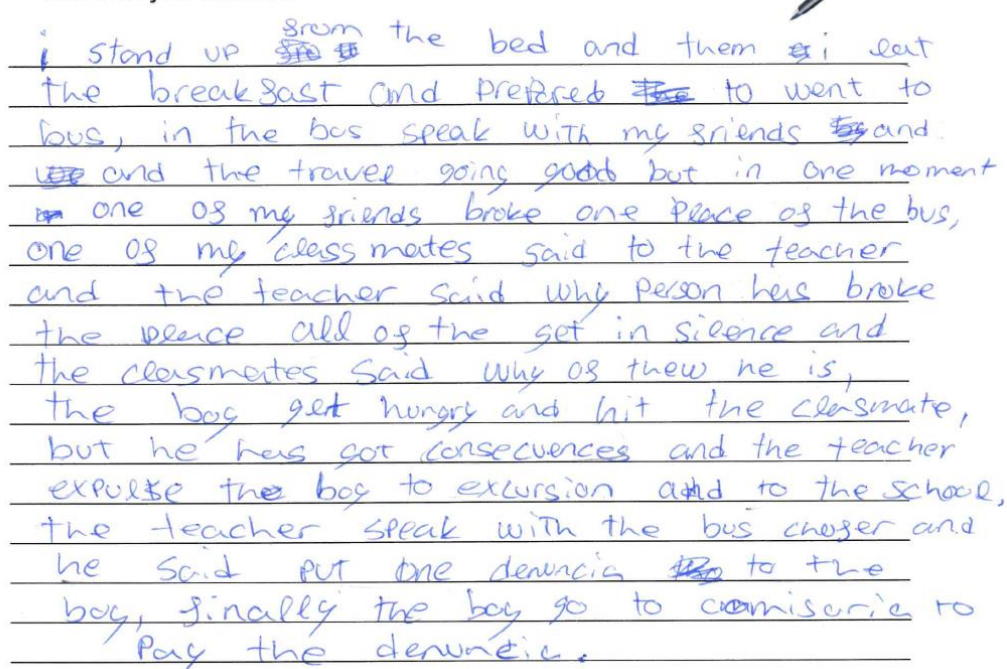 i stand up from the bed and them i eat
the breakfast and prefered to went to
bus, in the bus speak with my friends and
and the travel going good but in one moment
one of my friends broke one pleace of the bus,
one of my classmates said to the teacher
and the teacher said why person has broke
the pleace all of the get in silence and
the clasmates said why of thew he is,
the boy get hungry and hit the clasmate,
but he has got consecuences and the teacher
expulse the boy to excursion and to the school,
the teacher speak with the bus chofer and
he said put one denuncia to the
boy, finally the boy go to comisaria to
pay the denuncia.